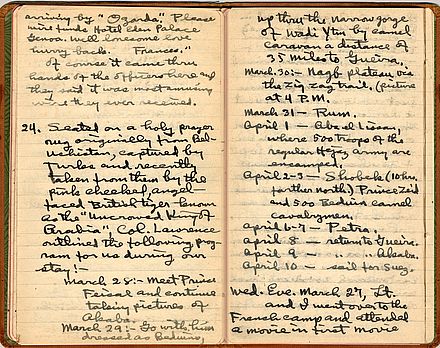 arriving by "Ozarda". Please
wire funds Hotel Eden Palace
Genoa. Well lonesome love
hurry back. Frances."
Of course it came thru
hands of the officers here and
they said it was most amusing
wire they ever received.
24. Seated on a holy prayer
rug originally from
captured by
Turks and recently
taken from them by the
pink cheeked, angel-
faced British tiger known
as the "Uncrowned King of
Arabia", Col. Lawrence
outlined the following prog
ram for us during our
stay:-
March 28:- Meet Prince
Feisal and continue
taking pictures of
Akaba
March 29:- Go with him
dressed as Beduins,
up thru the narrow gorge
of Wadi Ytm by camel
caravan a distance of
35 miles to Gueira.
March 30:- Nagb plateau via
the zig zag trail. (picture
at 4 P.M.
March 31 - Rum.
April 1 - Aba el Lissan,
where 500 troops of the
regular Hejaz army are
encamped.
April 2-3 - Shobek (10 hrs.
farther north) Prince Zeid
and 500 Beduin camel
cavalrymen.
April 6-7 - Petra.
April 8 - return to Gueira.
April 9 - " " Akaba.
April 10 - sail for Suez.
Wed. Eve. March 27, Lt.
and I went over to the
French camp and attended
a movie in first movie